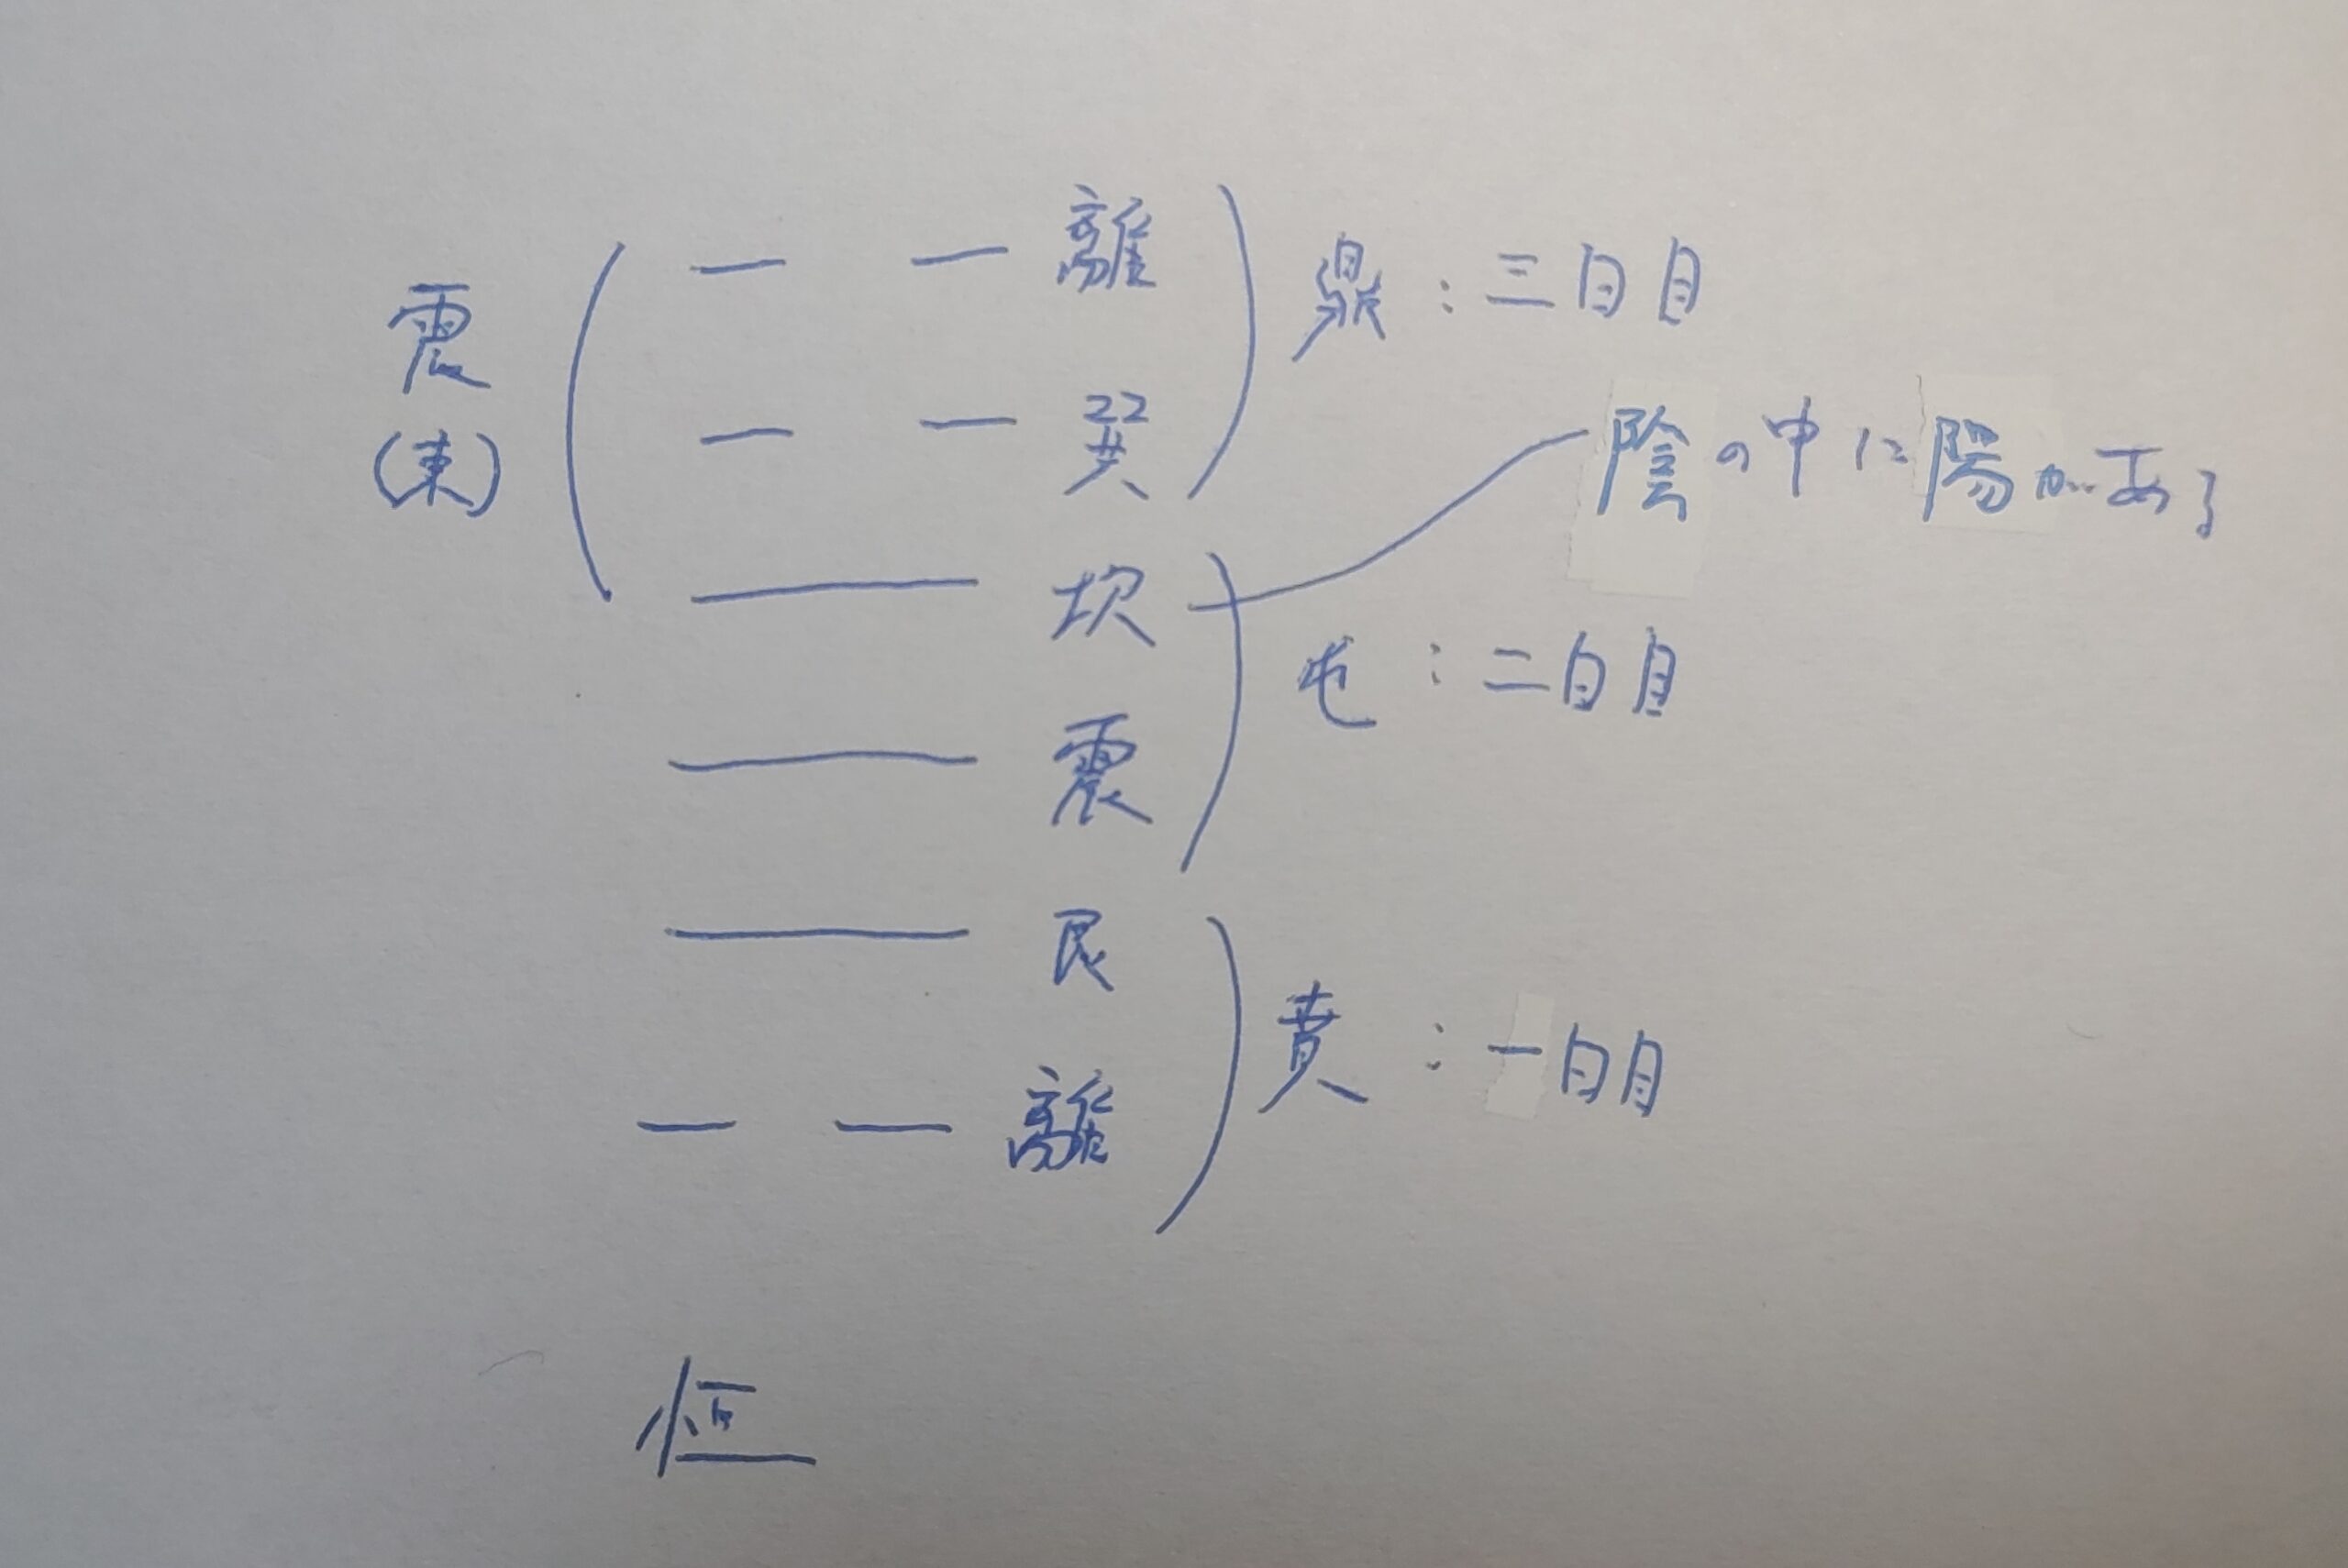 離
震
(東)
巽
鼎:三日目
陰の中に陽がある
坎
震
屯:二日目
艮
離
賁:一日目
恒